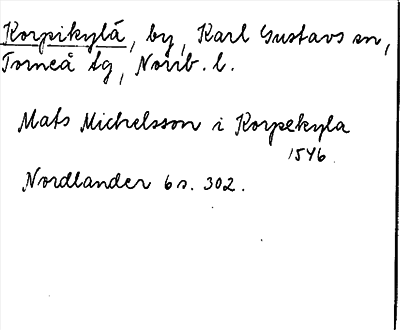 Korpikylä, by, Karl Gustavs sn,
Torneå tg, Norrb. l.
Mats Michelsson i Korpekyla
1546
Nordlander 6 s. 302.